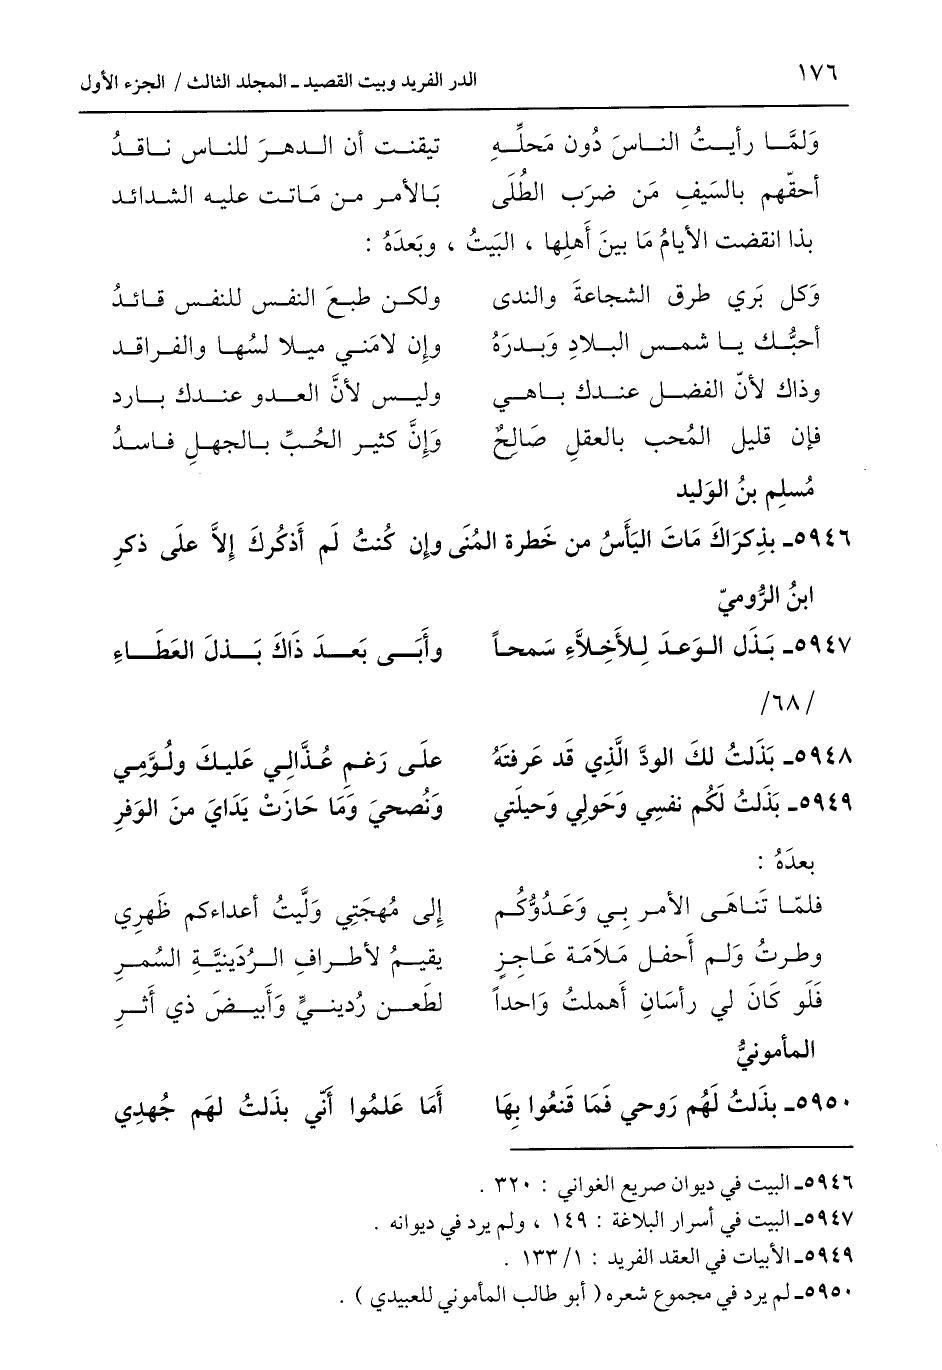 ١٧٦ الدر الفريد وبيت القصيد ـ المجلد الثالث / الجزء الأول
وَلمَّا رأيتُ الناسَ دُون مَحلِّهِ تيقنت أن الدهرَ للناس ناقدُ
أحقّهم بالسَيفِ مَن ضرَب الطُلَى بَالأمر من مَاتت عليه الشدائد
بذا انقضت الأيامُ مَا بينَ أهلِها ، البَيتُ ، وبَعدَهُ :
وَكل يَري طرق الشجاعةَ والندى ولكن طبعَ النفس للنفس قائدُ
أحبُّك يا شمس البلادِ وَبدرَهُ وإن لامَني ميلا لسُها والفراقد
وذاك لأنّ الفضل عندك باهي وليس لأنَّ العدو عندك بارد
فإن قليل المُحب بالعقلِ صَالِحٌ وَإنَّ كثير الحُبِّ بالجهلِ فاسدُ
مُسلِم بنُ الوَليد
٥٩٤٦ـ بذِكرَاكَ مَاتَ اليَأسُ من خَطرة المُنَى وإن كُنتُ لَم أذكُركَ إلاَّ علَى ذكرِ
ابنُ الرُّوميّ
٥٩٤٧ـ بَذَل الوَعدَ لِلأَخِلاَّءِ سَمحاً وأَبَى بَعدَ ذَاكَ بَذلَ العَطَاءِ
/٦٨/
٥٩٤٨ـ بَذَلتُ لكَ الودَّ الَّذِي قَد عَرفتَهُ علَى رَغمِ عُذَّالِي عَليكَ ولُوَّمِي
٥٩٤٩ـ بَذَلتُ لَكُم نفسِي وَحَولِي وَحيلَتي وَنُصحيَ وَمَا حَازَتْ يَدَايَ منَ الوَفرِ
بعدَهُ :
فلمّا تَنَاهَى الأمر بي وَعَدُوُّكُم إلى مُهجَتِي وَلَّيتُ أعداءكم ظَهري
وطرتُ وَلم أحفل مَلاَمَة عَاجِزٍ يقيمُ لأطراف الرُدَينيَّةِ السُمرِ
فَلَو كَانَ لي رأسَانِ أهملتُ وَاحداً لطَعن رُدينيٍّ وَأبيضَ ذي أثرِ
المأمونيُّ
٥٩٥٠ـ بذَلتُ لَهُم رَوحي فَمَا قَنعُوا بِهَا أَمَا عَلمُوا أنّي بذَلتُ لهَم جُهدِي
٥٩٤٦ـ البيت في ديوان صريع الغواني : ٣٢٠ .
٥٩٤٧ـ البيت في أسرار البلاغة : ١٤٩ ، ولم يرد في ديوانه .
٥٩٤٩ـ الأبيات في العقد الفريد : ١/ ١٣٣ .
٥٩٥٠ـ لم يرد في مجموع شعره ( أبو طالب المأموني للعبيدي ) .